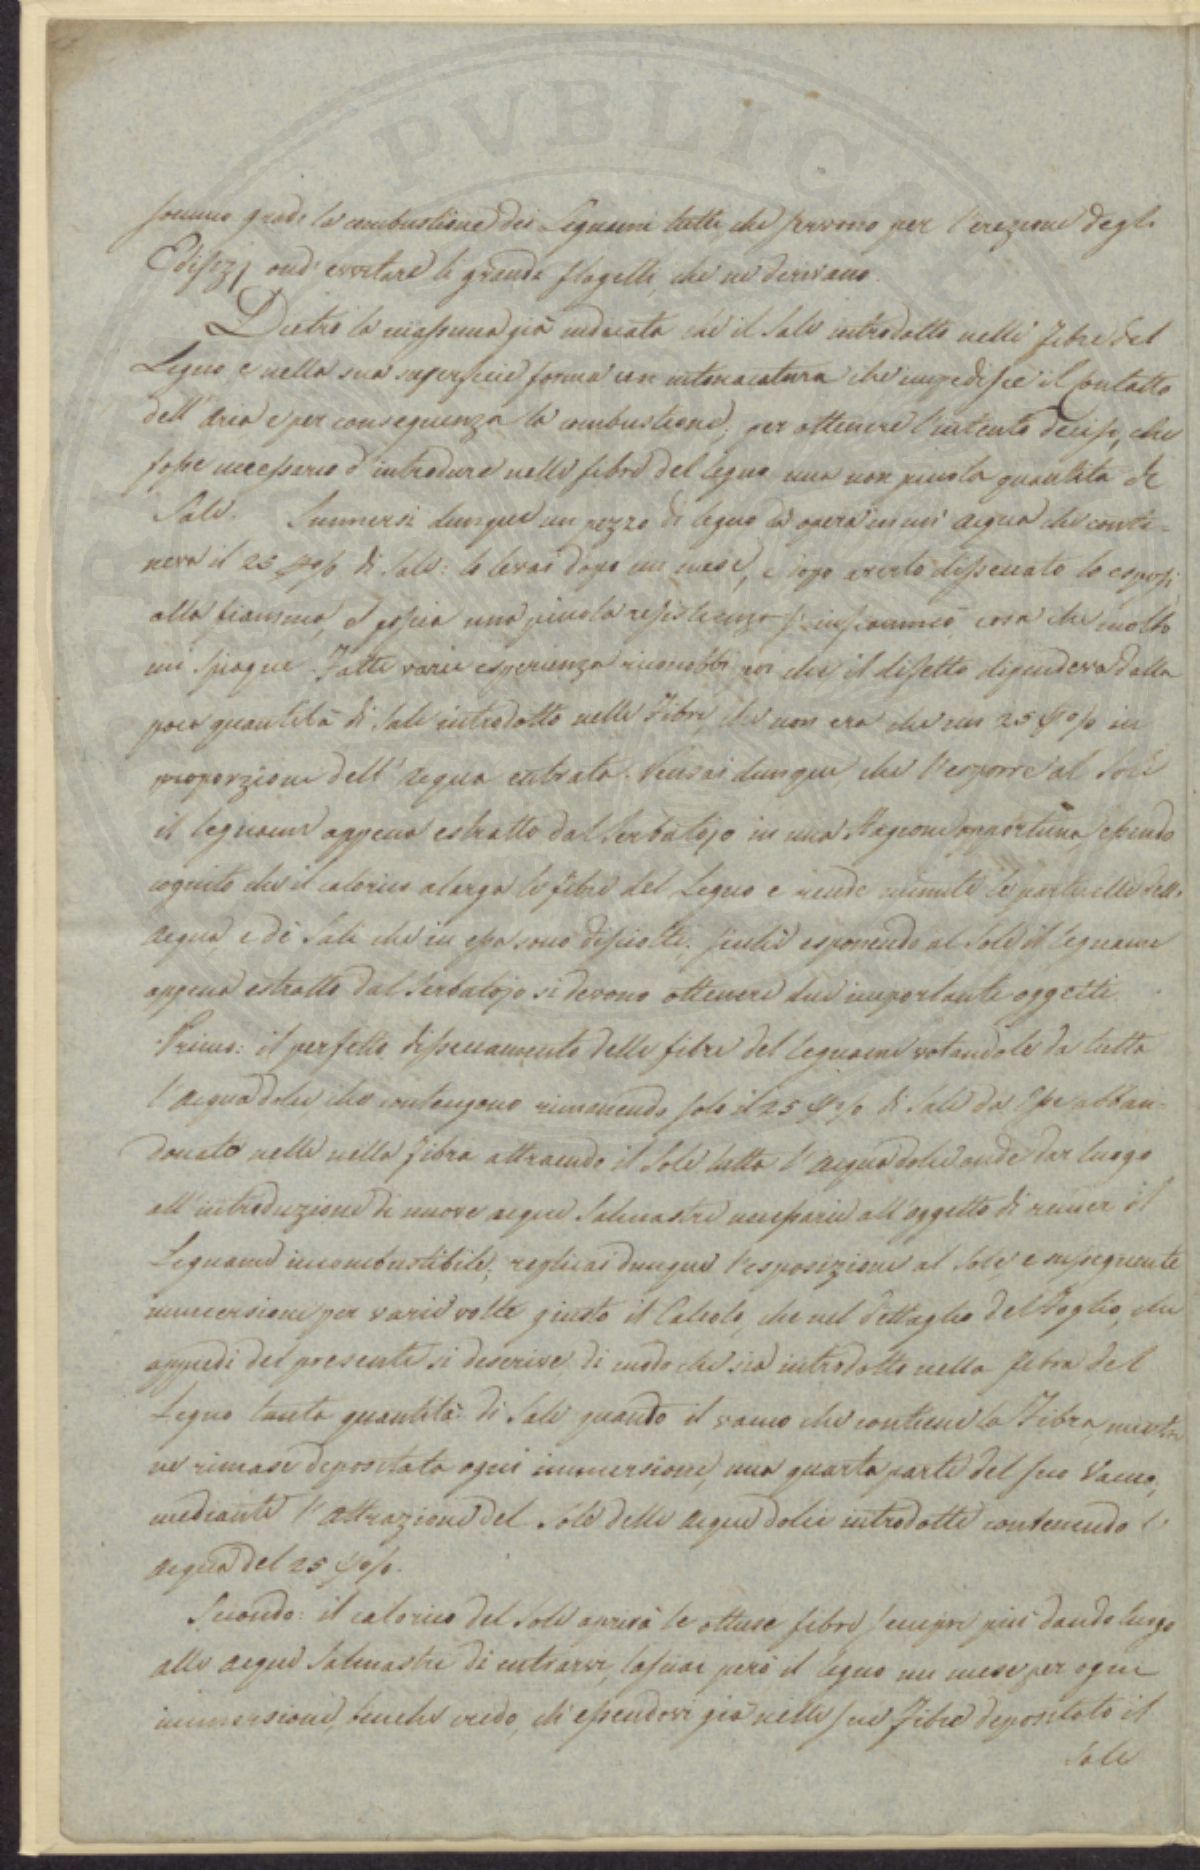 PVBLIC
sommo grado la combustione dei Legnami tutti, che servono per l'erezione degli
Edifizj ond' evvitare li grandi flagelli, che ne derivano.
Dietro la massima già indicata che il Sale introdotto nelle fibre del
Legno, e nella sua superfice forma un intonacatura che impedisce il Contatto
dell' Aria e per conseguenza la combustione; per ottenere l'intento decisi, che
fosse necessario d'introdure nelle fibre del legno una non picola quantità di
Sale. Immersi dunque un pezzo di legno da opera in un' Acqua che conte-
neva il 25 p% di Sale: lo levai dopo un mese, e dopo averlo dissecato lo esposi
alla fiamma, e dopo una picola resistenza s' infiammò, cosa che molto
mi spiaque. Fatte varie esperienze riconobbi poi che il difetto dipendeva dalla
poca quantità di Sale introdotto nelle Fibre, che non era che un 25 p% in
proporzione dell' Acqua entrata. Pensai dunque, che l'esporre al Sole
il legname appena estratto dal Serbatojo in una Stagione opportuna, essendo
cognito che il calorico alarga le fibre del Legno e rende minute le particelle dell'
Acqua, e di Sale che in essa sono disciolte, sicchè esponendo al Sole il legname
appena estratto dal Serbatojo si devono ottenere due importante oggetti.
Primo: il perfetto dissecamento delle fibre del legname votandole da tutta
l'Acqua dolce che contengono rimanendo solo il 25 p% di Sale da essa abban-
donato nelle nella fibra attraendo il Sole tutta l' Acqua dolce onde dar luogo
all' introduzione di nuove acque Salmastre necessarie all' oggetto di render il
Legname incombustibile; replicai dunque l'esposizione al Sole, e susseguente
immersione per varie volte giusto il Calcolo, che nel dettaglio del Foglio, che
appiedi del presente si descrive, di modo che sia introdotto nella fibra del
Legno tanta quantità di Sale quando il vacuo che contiene la Fibra, mentre
ne rimase depositata ogni immersione, una quarta parte del suo Vacuo,
mediante l' attrazione del Sole delle Acque dolci introdotte contenendo l'
Acqua del 25 p%.
Secondo: il calorico del Sole aprirà le ottuse fibre sempre più dando luogo
alle Acque Salmastre di entrarvi, lasciai però il legno un mese per ogni
immersione, benchè credo, che essendovi già nelle sue Fibre depositato il
Sale